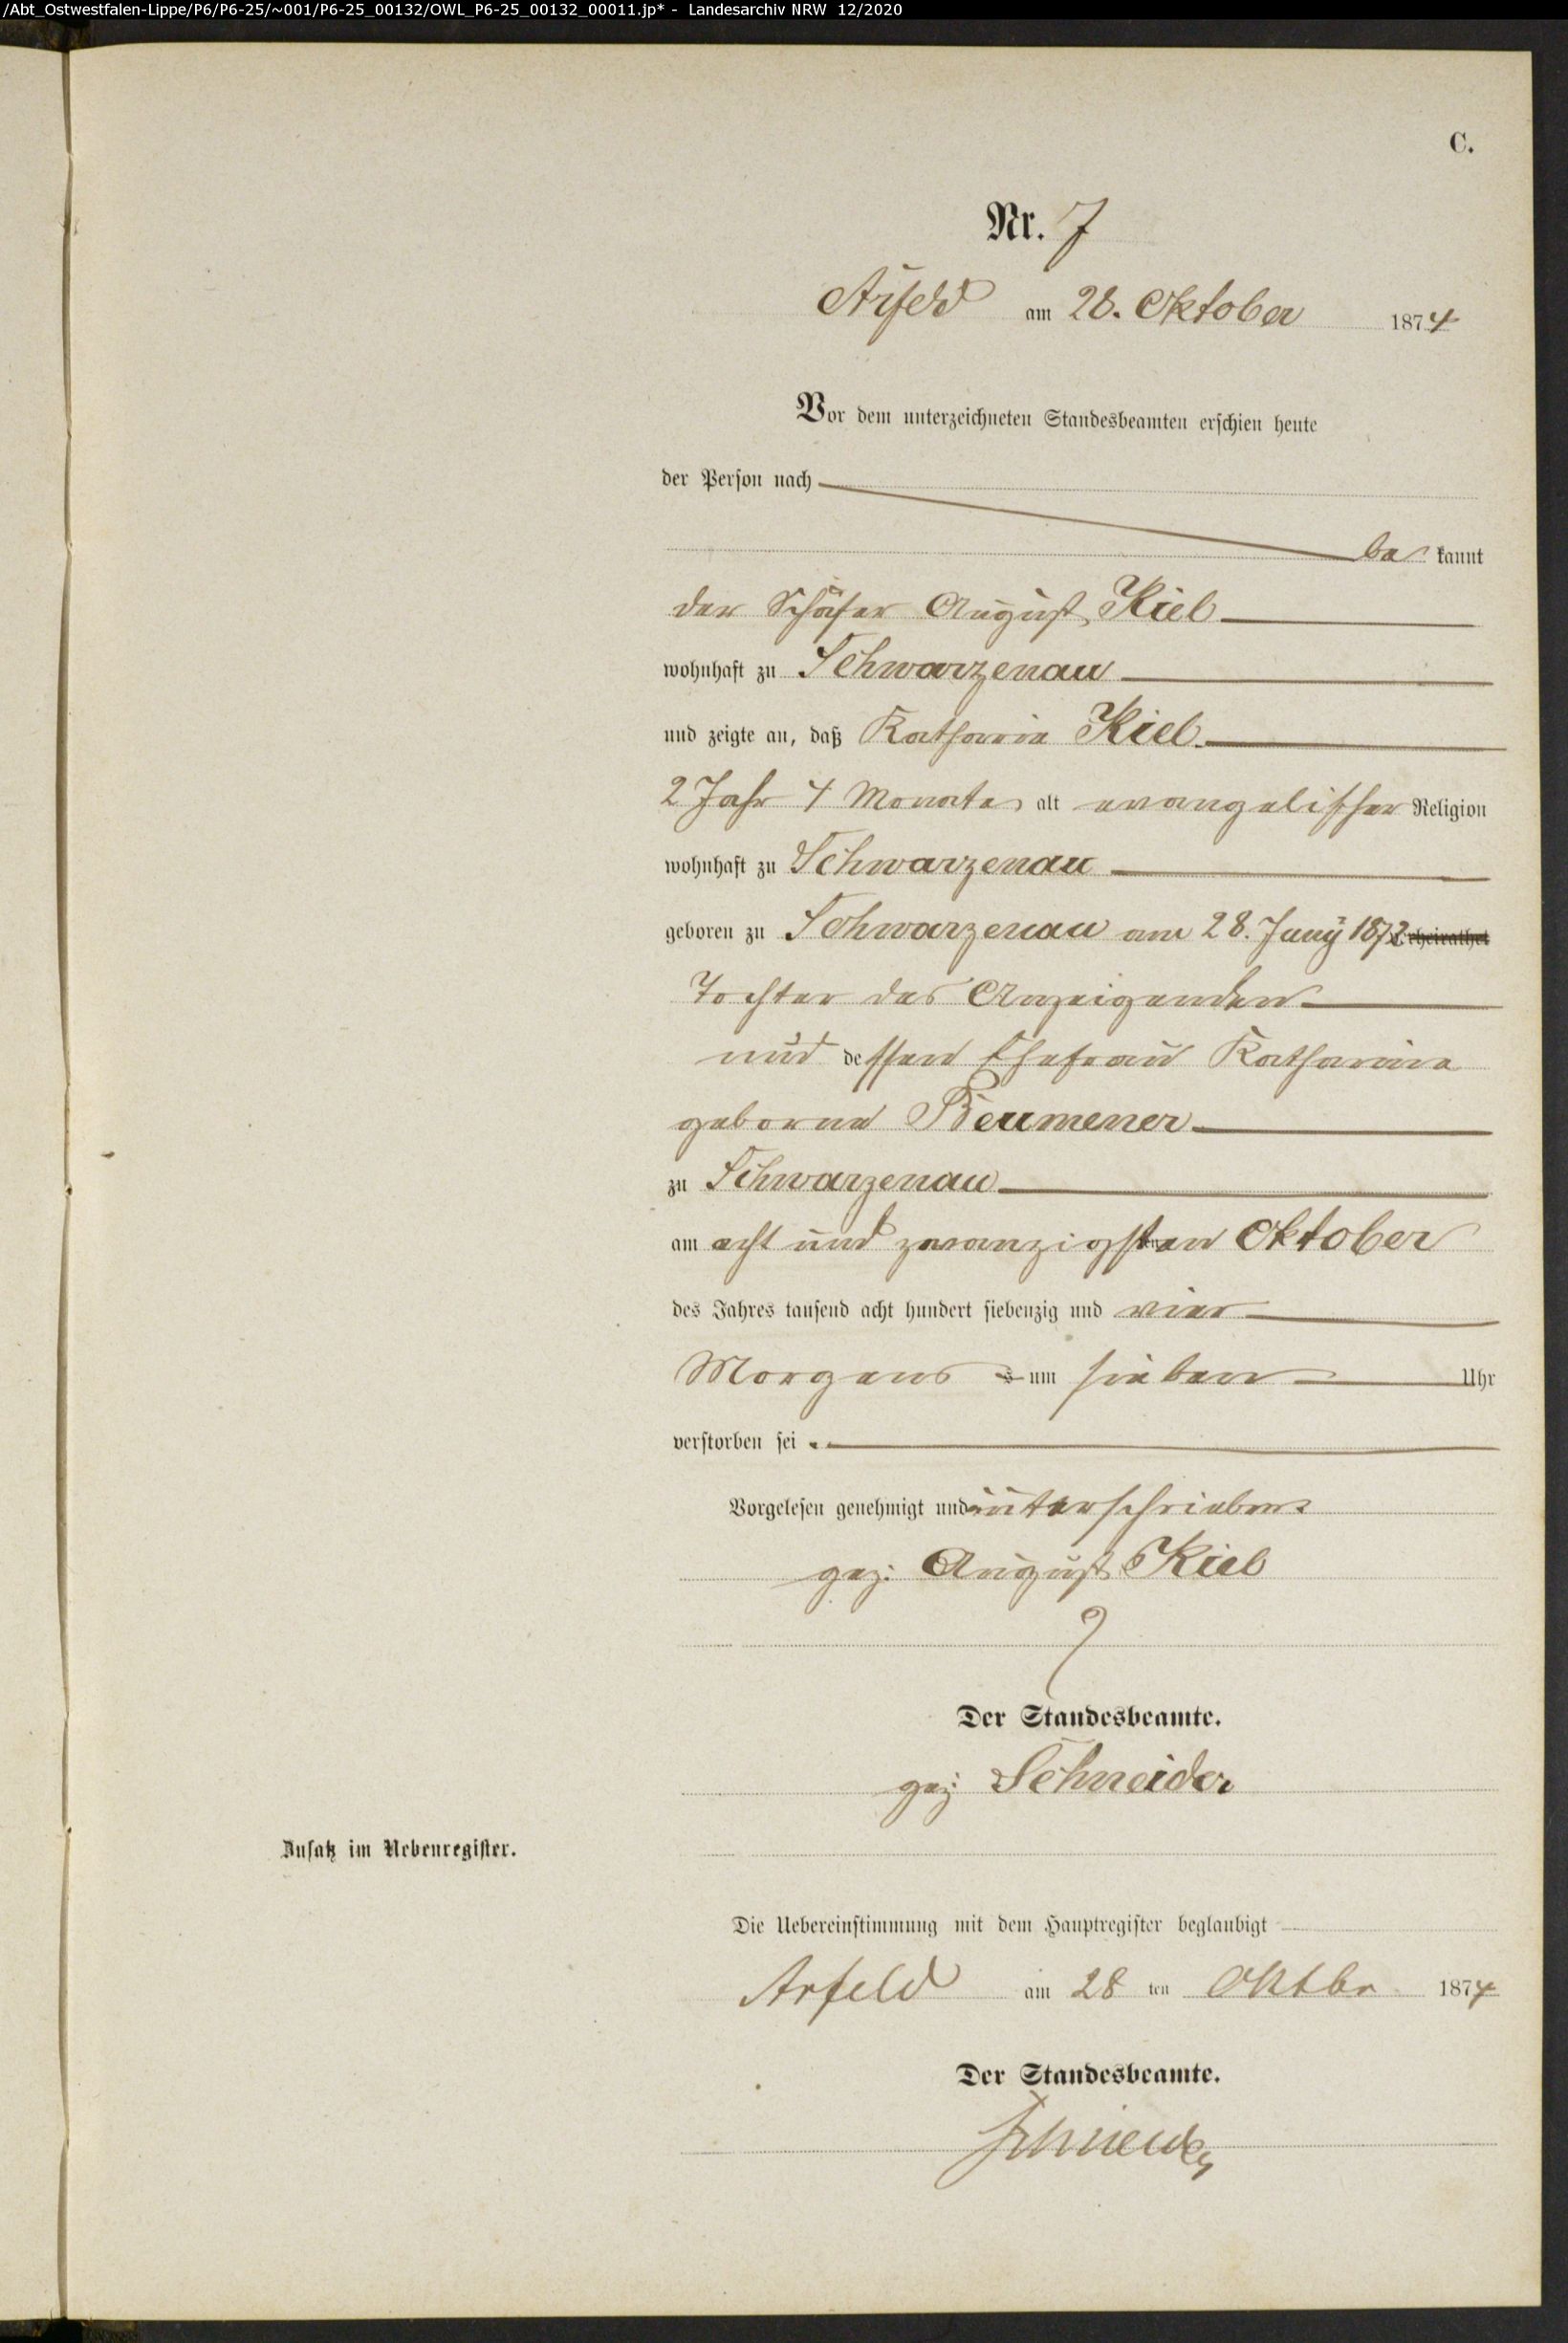 /Abt_Ostwestfalen-Lippe/P6/P6-25/~001/P6-25_00132/OWL_P6-25_00132_00011.jp* - Landesarchiv NRW 12/2020
C.
Nr. 7
Arfeld am 28. Oktober 1874
Vor dem unterzeichneten Standesbeamten erschien heute
der Person nach
be kannt
der Schäfer August Kiel
wohnhaft zu Schwarzenau
und zeigte an, daß Katharine Kiel
2 Jahr 4 Monate alt evangelischer Religion
wohnhaft zu Schwarzenau
geboren zu Schwarzenau am 28. Juny 1872 erheirathet
Tochter des Anzeigenden
und dessen Ehefrau Katharine
geborne Beumener
zu Schwarzenau
am acht und zwanzigsten Oktober
des Jahres tausend acht hundert siebenzig und vier
Morgens um sieben Uhr
verstorben sei .
Vorgelesen genehmigt und unterschrieben
gez: August Kiel
Der Standesbeamte.
gez: Schneider
Zusatz im Nebenregister.
Die Uebereinstimmung mit dem Hauptregister beglaubigt
Arfeld am 28 ten Oktbr 1874
Der Standesbeamte.
Schneider